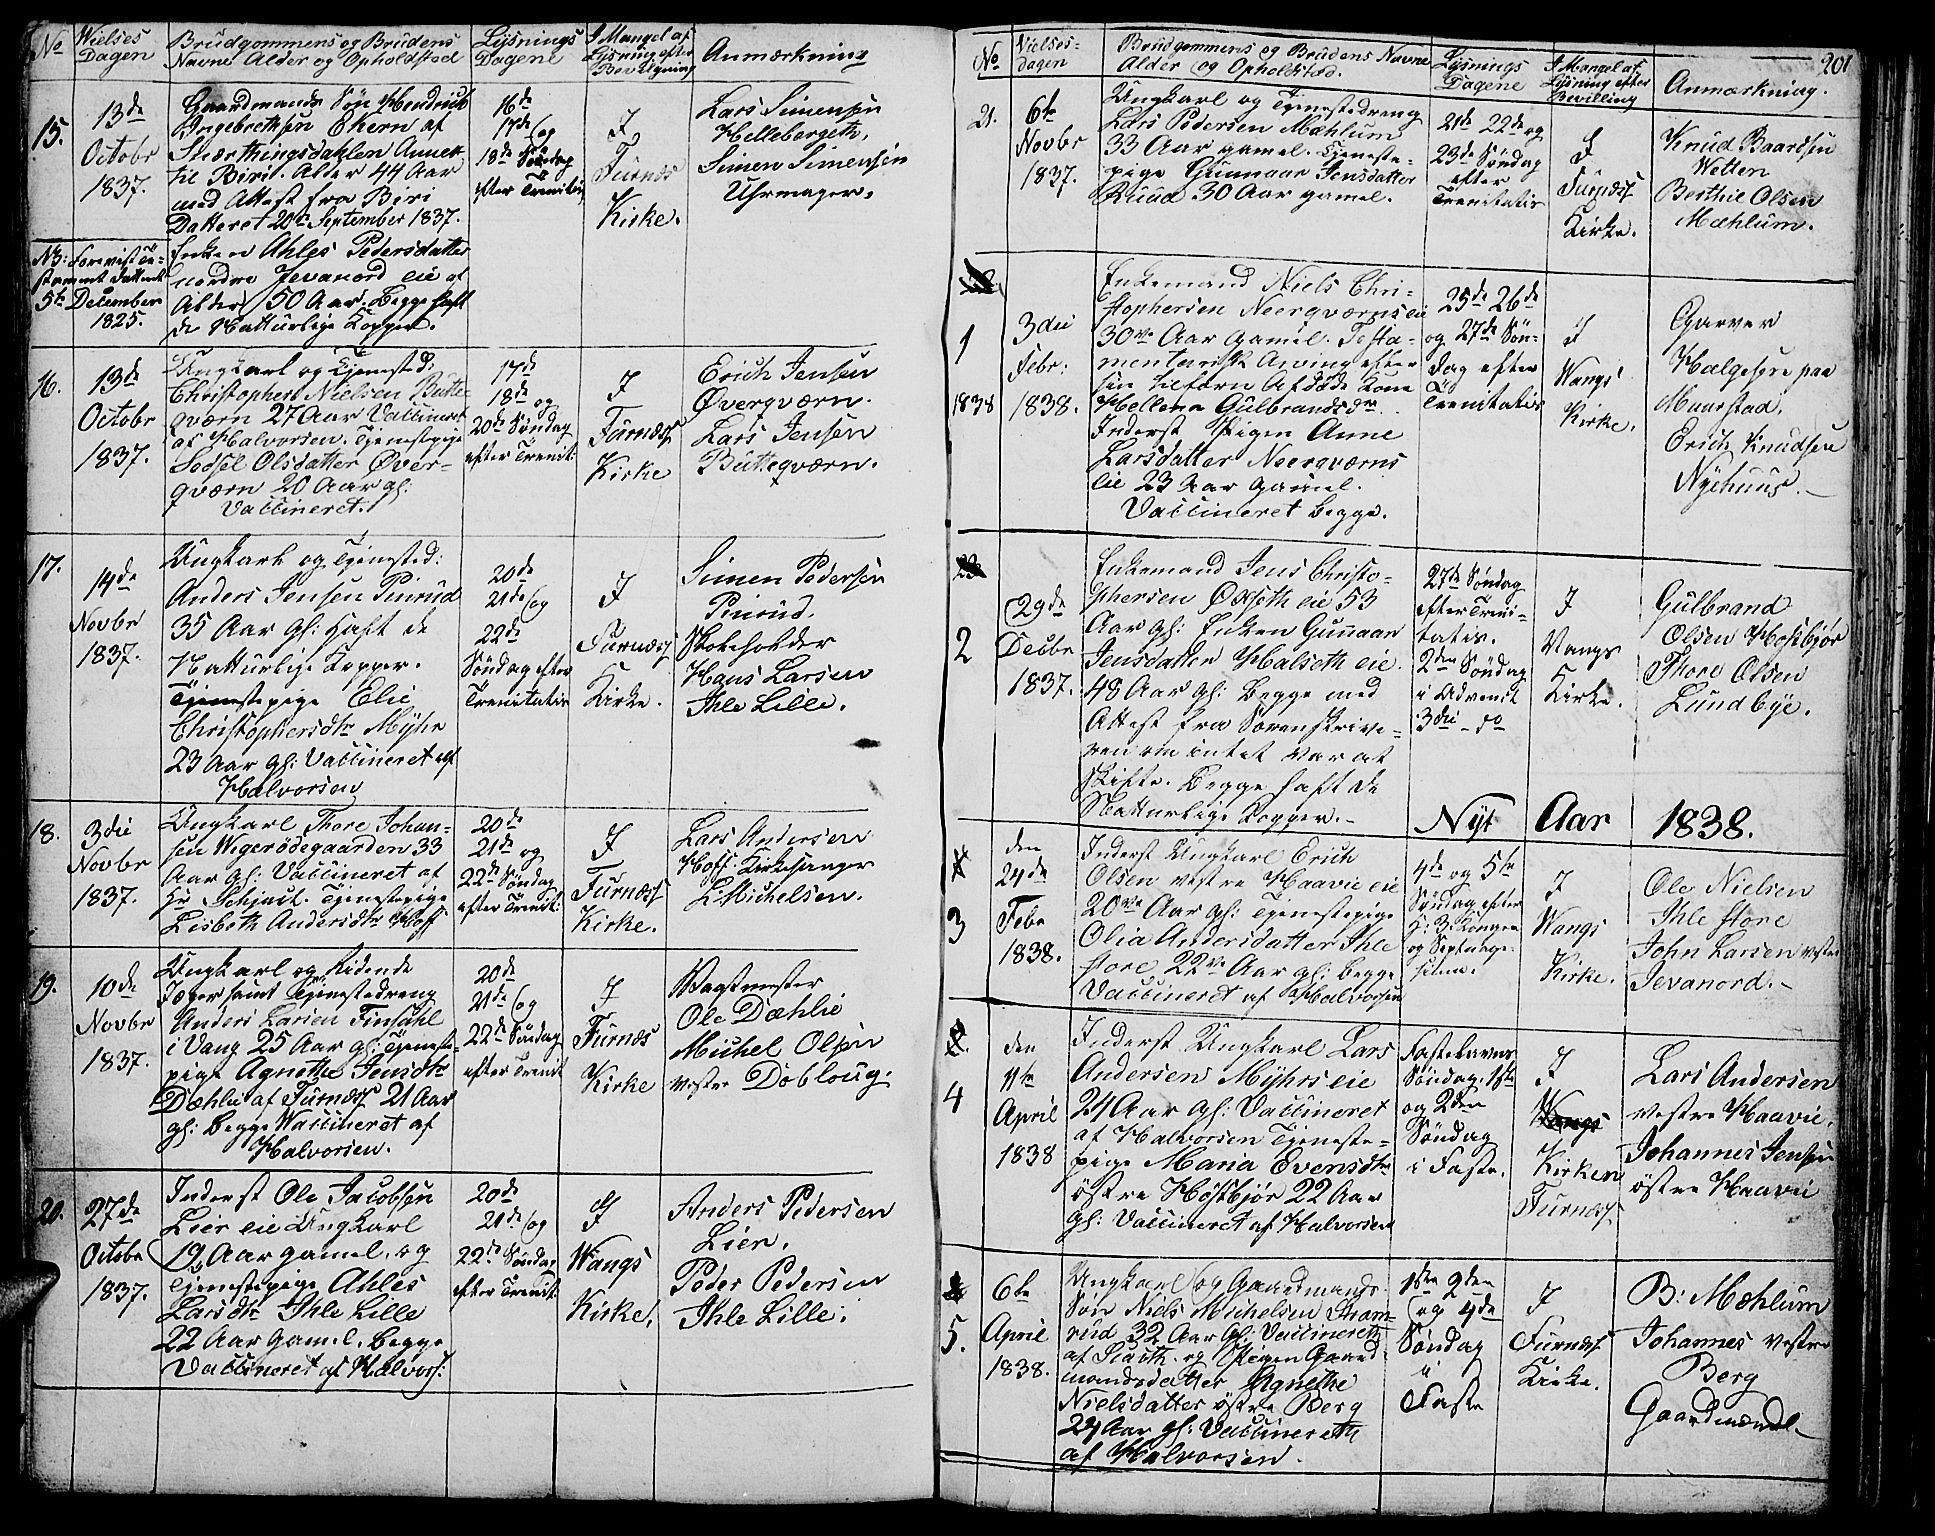 No
Wielses Dagen
Brudgommens og Brudens
Navne Alder og Opholdsted
Lysnings
Dagene
I Mangel af
Lysning efter
Bevilgning
Anmærkning
15.
13de
Octobr
1837.
Gaardmands Søn Hendrick
Ingebrethsen Ekern af
til Biri. Alder 44 Aar
med Attest fra Biri
Datteret 20de September 1837.
NB: Forevist
5te December
1825.
Enken Ahles Pedersdatter
nordre Jevanord eie af
Alder 50 Aar. Begge haft
de Natturlige Kopper.
16de
17de og
18de Søndag
efter Trenitis
I
Furnæs
Kirke.
Lars Simensen
Hellebergeth.
Simen Simensen
Uhrmager.
16.
13de
Octobr
1837.
Ungkarl og Tjenested:
Christopher Nielsen Butte-
qværn 27 Aar Vaccineret
af Halvorsen. Tjenestepige
Sedsel Olsdatter Øver-
qværn 20 Aar gl:
Vaccineret.
17de
18de og
20de Søndag
efter Trenit:
I
Furnæs
Kirke
Erich Jensen
Øverqværn.
Lars Jensen
Butteqværn.
17.
14de
Novbr
1837.
Ungkarl og Tjenested:
Anders Jensen Pinrud
35 Aar gl: haft de
Natturlige Kopper.
Tjenestepige Elie
Christophersdtr Myhr
23 Aar gl: Vaccineret af
Halvorsen
20de
21de og
22de
Søndag efter
Trenitatis
I
Furnæs
Kirke.
Simen Pedersen
Pinrud.
Skoleholder
Hans Larsen
Ihle Lille.
18.
3die
Novbr
1837.
Ungkarl Thore Johan-
sen Wigerødegaarden 33
Aar gl: Vaccineret af
Hr Schiult. Tjenestepige
Lisbeth Andersdtr Hoff
20de
21de og
22de Søndag
efter Trenit:
I
Furnæs
Kirke.
Lars Andersen
Hoff Kirkesanger
L Michelsen.
19.
10de
Novbr
1837.
Ungkarl og Ridende
Jæger samt Tjenestedreng
Anders Larsen Finsahl
i Vang 25 Aar gl: Tjeneste-
pige Agnethe Jensdtr
Dæhlie af Furnæs 21 Aar
gl: begge Vaccineret af
Halvorsen.
20de
21de og
22de Søndag
efter Trenit
I
Furnæs
Kirke
Vagtmester
Ole Dæhlie
Michel Olsen
vestre Dobloug.
20.
27de
Octobr
1837.
Inderst Ole Jacobsen
Lier eie Ungkarl
19 Aar gamel. og
Tjenestepige Ahles
Larsdtr Ihle Lille
22 Aar gamel. begge
Vaccineret af Halvors:
20de
21de og
22de Søndag
efter Trenit:
I
Wangs
Kirke.
Anders Pedersen
Lien.
Peder Pedersen
Ihle Lille.
201
No
Vielses-
dagen
Brudgommens og Brudens Navne
Alder og Opholdsted.
Lysnings
Dagene
I Mangel af
Lysning efter
Bevilling
Anmærkning.
21.
6te
Novbr
1837.
Ungkarl og Tjenestedreng
Lars Pedersen Mæhlum
33 Aar gamel. Tjeneste-
pige Gunnaar Jensdatter
Ruud 30 Aar gamel.
21de 22de og
23de Søndag
efter
Trenitatis
I
Furnæs
Kirke.
Knud Baardsen
Welten
Berthil Olsen
Mæhlum.
1
1838
3die
Febr:
1838.
Enkemand Niels Chri-
stophersen Neerqværns eie
30ve Aar gamel. Testa-
mentarisk Arving efter
sin tilforn Afdøde Kone
Hellena Gulbrandsdtr.
Inderst Pigen Anne
Larsdatter Neerqværns
eie 23 Aar gamel.
Vaccineret begge.
25de 26de
og 27de Søn-
dag efter
Trenitatis
I
Wangs
Kirke.
Garver
Helgesen paa
Maarstad.
Erich Knudsen
Nyehuus.
2
29de
Decbr
1837.
Enkemand Jens Christo-
phersen Øxseth eie 53
Aar gl: Enken Gunnaar
Jensdatter Halseth eie
48 Aar gl: begge med
Attest fra Sorenskrive-
ren om intet var at
skifte. begge haft de
Natturlige Kopper.
27de Søndag
efter Treni-
tatis.
2den Søndag
i Advendt
3die - do
I
Vangs
Kirke.
Gulbrand
Olsen Hosbjør
Thore Olsen
Lundbye.
Nyt Aar 1838.
3
den
24de
Febr
1838.
Inderst Ungkarl Erich
Olsen vestre Haavie eie
20ve Aar gl: Tjenestepige
Olia Andersdatter Ihle
store 22ve Aar gl: begge
Vaccineret af Halvorsen
4de og 5te
Søndag efter
H: 3: Konger
og Septuage-
sima.
I
Wangs
Kirke.
Ole Nielsen
Ihle store
John Larsen vestre
Jevanord.
4
den
11te
April
1838
Inderst Ungkarl Lars
Andersen Myhrs eie
24 Aar gl: Vaccineret
af Halvorsen Tjeneste-
pige Maria Evensdtr
østre Høstbjør 22 Aar
gl: Vaccineret af Halvorsen
Fastelavns
Søndag. 1ste
og 2den
Søndag
i Faste.
I
Wangs
Kirken
Furnæs.
Lars Andersen
vestre Haavie.
Johannes Jensen
østre Haavie
5.
6te
April
1838.
Ungkarl og Gaardmands
Søn Niels Michelsen Stram-
rud 32 Aar gl: Vaccineret
af Stuth. og Pigen Gaard
mandsdatter Agnethe
Nielsdatter østre Berg
24 Aar gl: Vaccineret
af Halvorsen.
1ste 2den
og 4de
Søndag
i
Faste
I
Furnæs
Kirke.
B: Mæhlum
Johannes vestre
Berg
Gaardmænd.